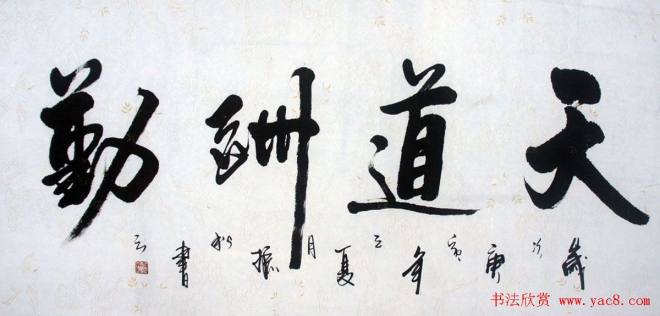 天道酬勤
歲次庚寅年之夏月振松書云
书法欣赏 www.yac8.com